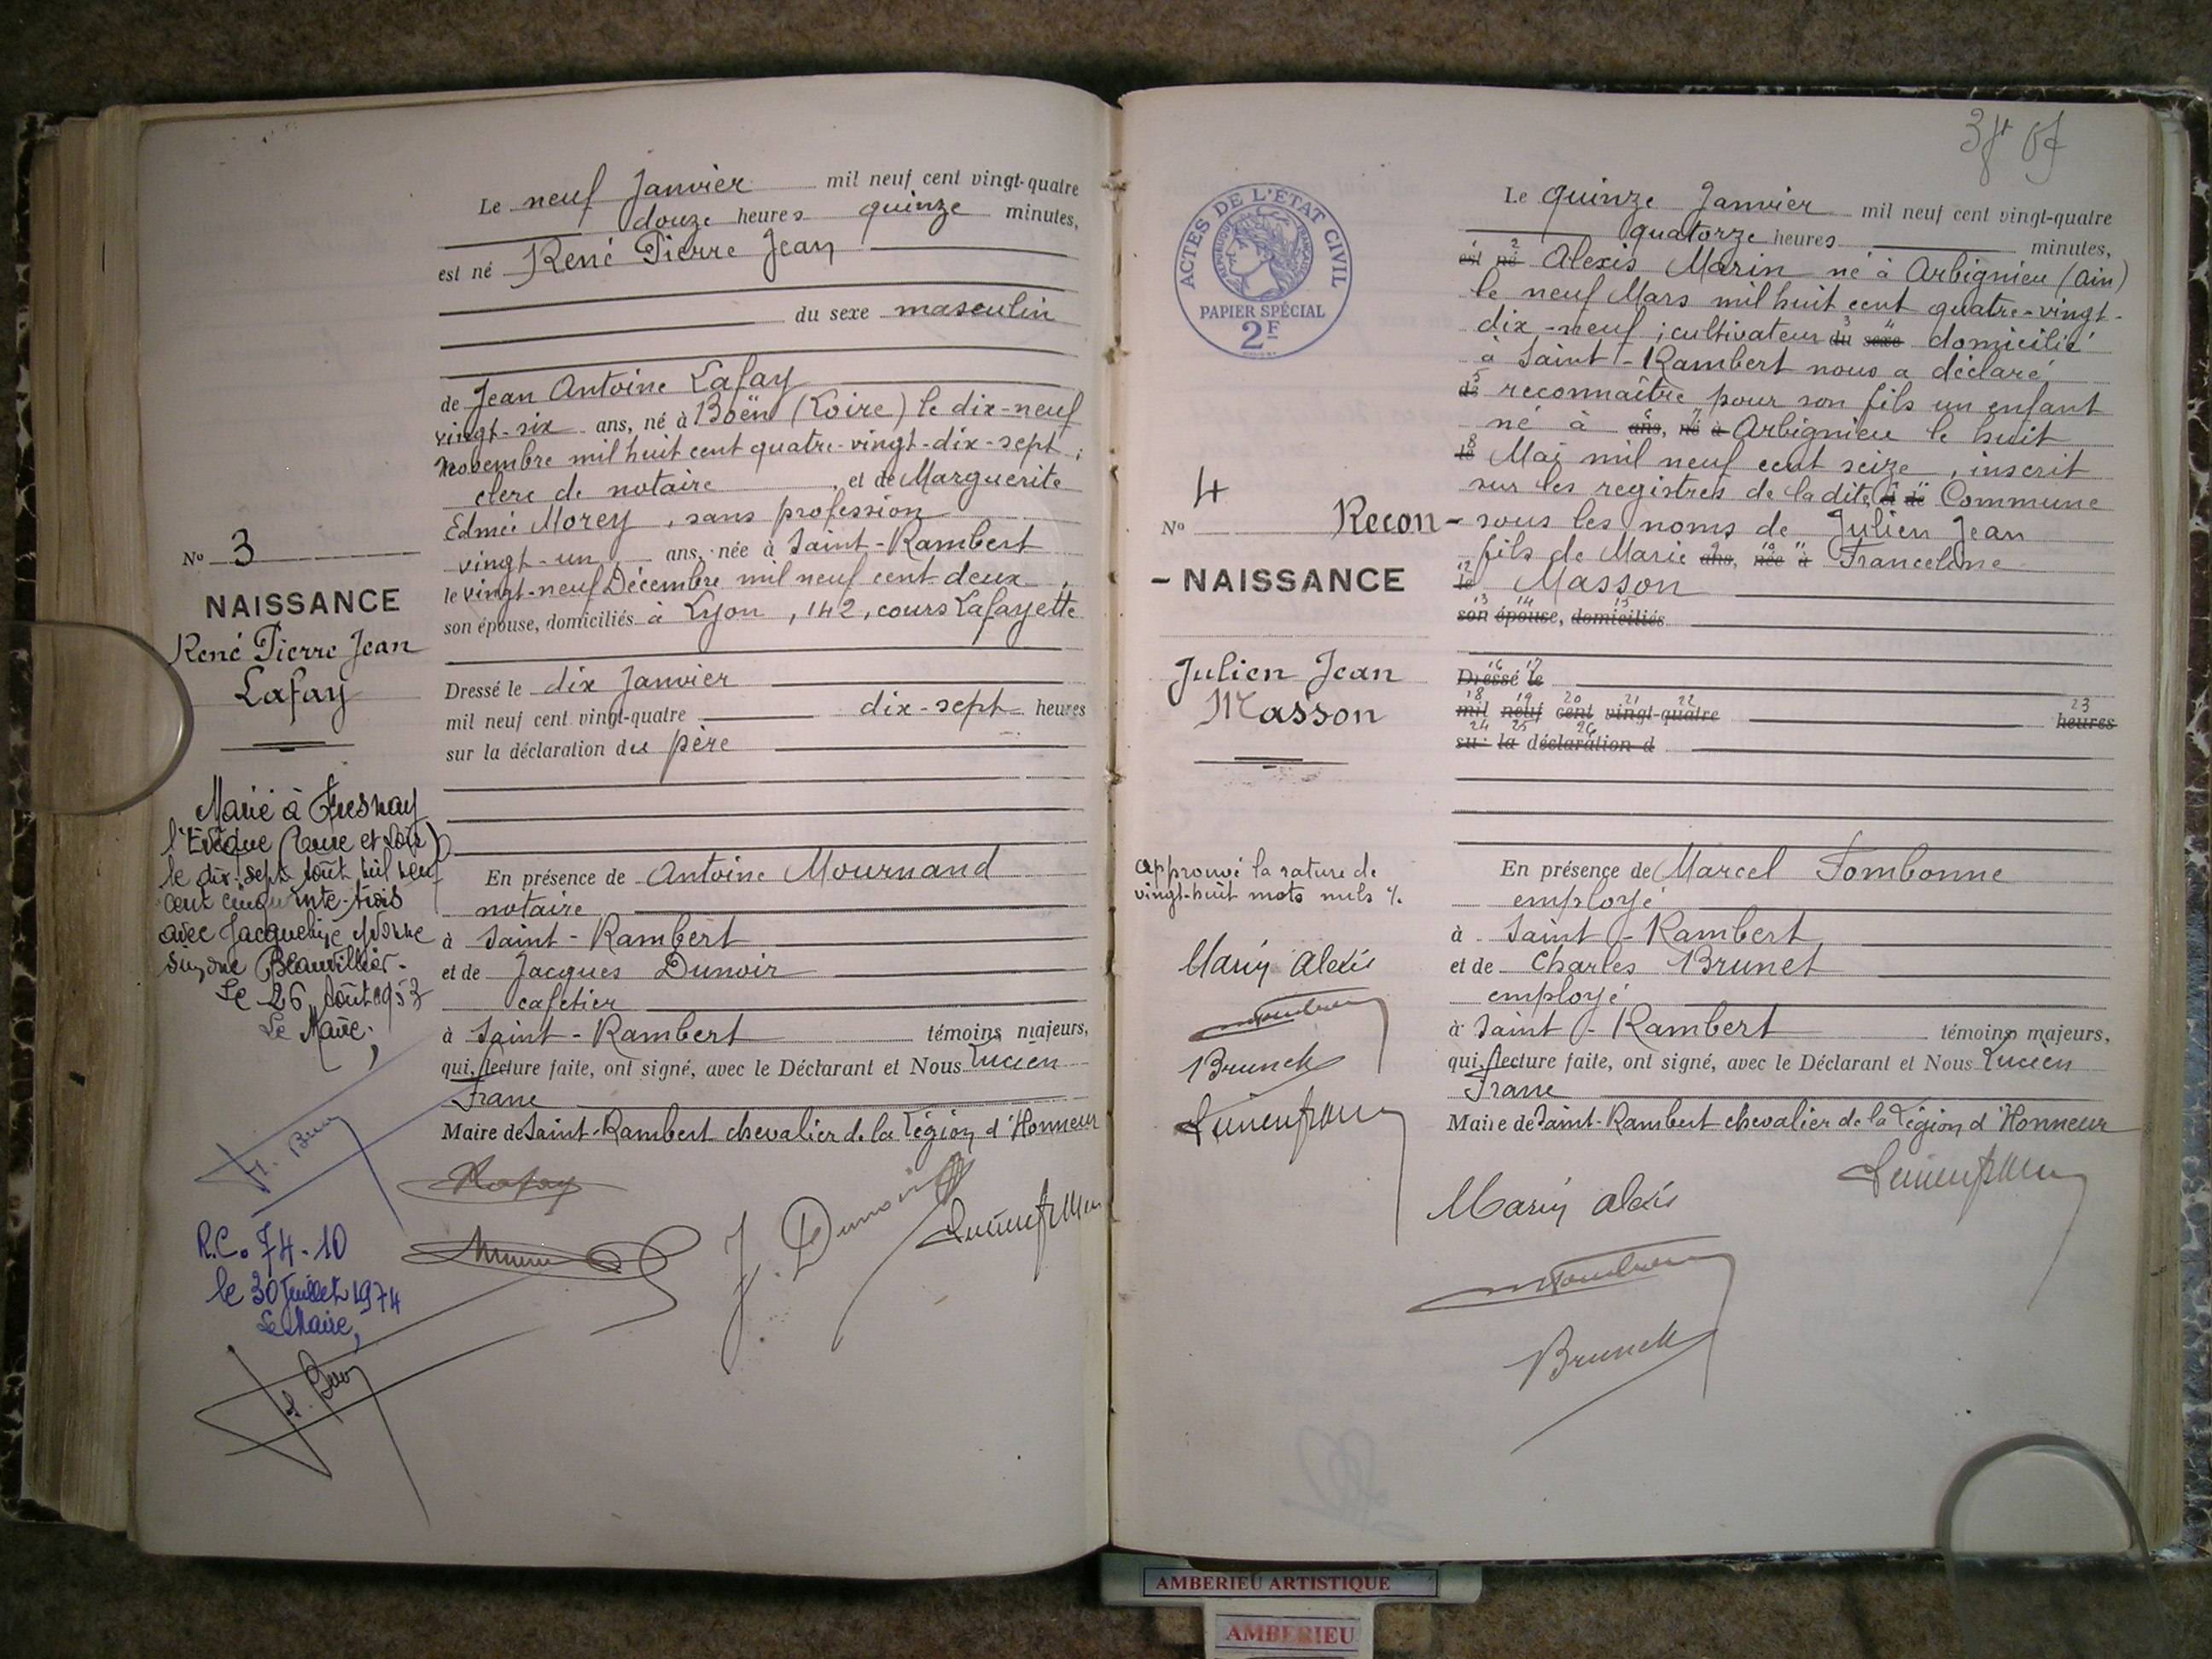 Le neuf Janvier mil neuf cent vingt-quatre
douze heures quinze minutes,
est né René Pierre Jean
du sexe masculin
de Jean Antoine Lafay
vingt-six ans, né à Boën (Loire) le dix-neuf
Novembre mil huit cent quatre-vingt-dix-sept ;
clerc de notaire, et de Marguerite
Edmée Morey, sans profession
vingt-un ans, née à Saint-Rambert
le vingt-neuf Décembre mil neuf cent deux,
son épouse, domiciliés à Lyon, 142, cours Lafayette
Dressé le dix Janvier
mil neuf cent vingt-quatre dix-sept heures
sur la déclaration du père
En présence de Antoine Mournand
notaire
à Saint-Rambert
et de Jacques Dunoir
cafetier
à Saint-Rambert témoins majeurs,
qui, lecture faite, ont signé, avec le Déclarant et Nous Lucien
Franc
Maire de Saint-Rambert chevalier de la Légion d'Honneur
Lafay
J. Dunoir
No 3
NAISSANCE
René Pierre Jean
Lafay
Marié à Fresnay
l'Evêque (Eure et Loir)
le dix-sept août mil neuf
cent cinquante-trois
avec Jacqueline Yvonne
Simone Beauvillier.
Le 26 Août 1953
Le Maire,
R.C. 74-10
le 30 Juillet 1974
Le Maire,
ACTES DE L'ÉTAT CIVIL
RÉPUBLIQUE FRANÇAISE
PAPIER SPÉCIAL
2F
Le quinze Janvier mil neuf cent vingt-quatre
quatorze heures minutes,
est né Alexis Marin né à Arbignieu (Ain)
le neuf Mars mil huit cent quatre-vingt-
dix-neuf ; cultivateur du sexe domicilié
à Saint-Rambert nous a déclaré
de reconnaître pour son fils un enfant
né à ans, né à Arbignieu le huit
le Mai mil neuf cent seize, inscrit
sur les registres de la dite et de Commune
sous les noms de Julien Jean
fils de Marie ans, née à Franceline
le Masson
son épouse, domiciliés
Dressé le
mil neuf cent vingt-quatre heures
sur la déclaration d
En présence de Marcel Fombonne
employé
à Saint-Rambert
et de Charles Brunet
employé
à Saint-Rambert témoins majeurs,
qui, lecture faite, ont signé, avec le Déclarant et Nous Lucien
Franc
Maire de Saint-Rambert chevalier de la Légion d'Honneur
Marin Alexis
No 4 Recon-
- NAISSANCE
Julien Jean
Masson
Approuvé la rature de
vingt-huit mots nuls
Marin Alexis
AMBERIEU ARTISTIQUE
AMBERIEU